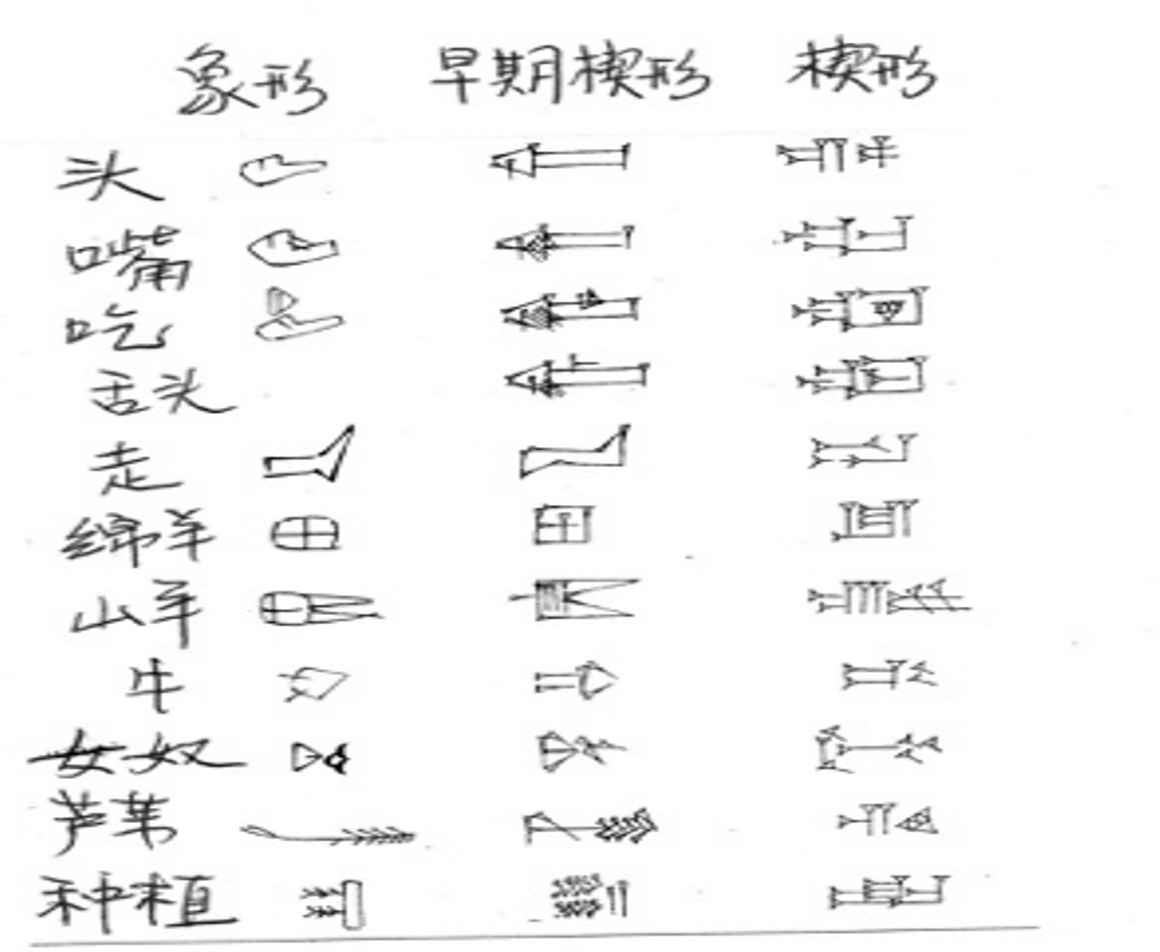 象形 早期楔形 楔形
头
嘴
吃
舌头
走
绵羊
山羊
牛
女奴
芦苇
种植